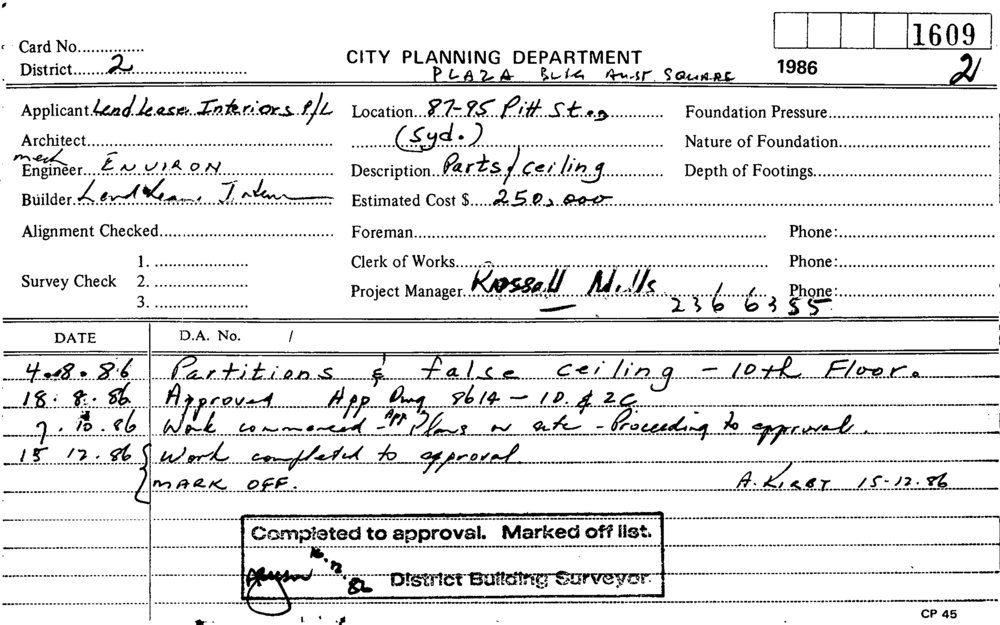 1609
Card No.
CITY PLANNING DEPARTMENT
District 2
PLAZA BLDG AUST SQUARE
1986
2
Applicant Lend Lease Interiors P/L
Location 87-95 Pitt St.,
Foundation Pressure
Architect
(Syd.)
Nature of Foundation
mech
Engineer ENVIRON
Description Parts/ceiling
Depth of Footings
Builder Lend Lease Inter
Estimated Cost $ 250,000
Alignment Checked
Foreman
Phone:
Clerk of Works
Phone:
Survey Check 1. 2. 3.
Project Manager Mills
Phone: 236 6355
DATE D.A. No. /
4.8.86 Partitions & false ceiling - 10th Floor.
18.8.86 Approved App Dwg 8614 - 1D & 2C
7.10.86 Work commenced - App Plans on site - Proceeding to approval.
15 12.86 Work completed to approval.
MARK OFF. A. KIRBY 15-12.86
Completed to approval. Marked off list.
16.12.86
District Building Surveyor.
CP 45